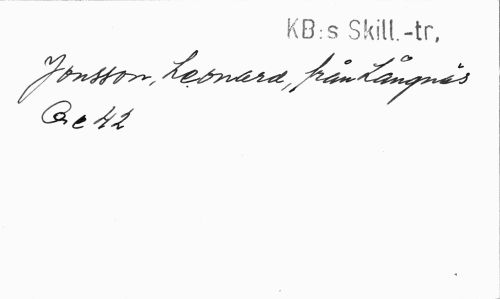 KB:s Skill.-tr,
Jonsson, Leonard, från Långnäs
Qe 42